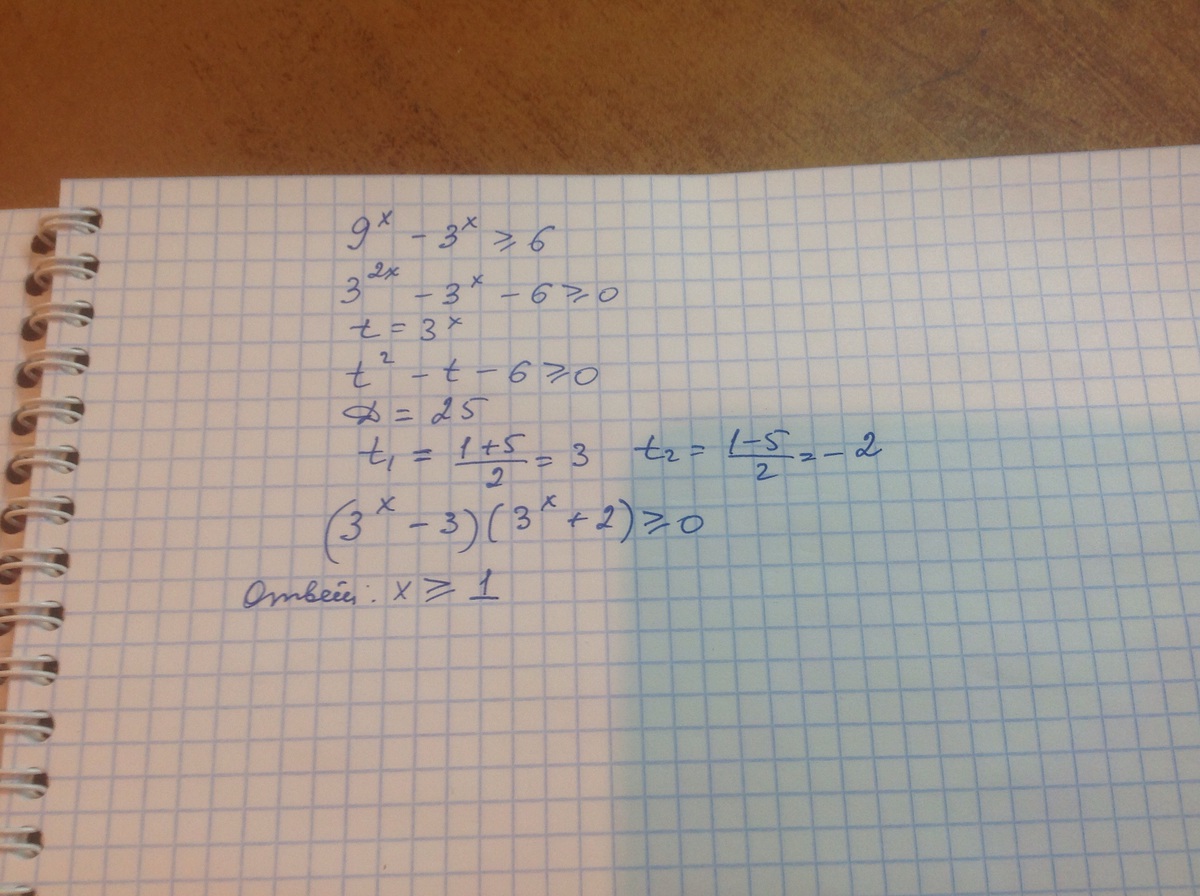 9^x - 3^x ≥ 6
3^2x - 3^x - 6 ≥ 0
t = 3^x
t^2 - t - 6 ≥ 0
D = 25
t₁ = (1+5)/2 = 3   t₂ = (1-5)/2 = -2
(3^x - 3)(3^x + 2) ≥ 0
Ответ: x ≥ 1